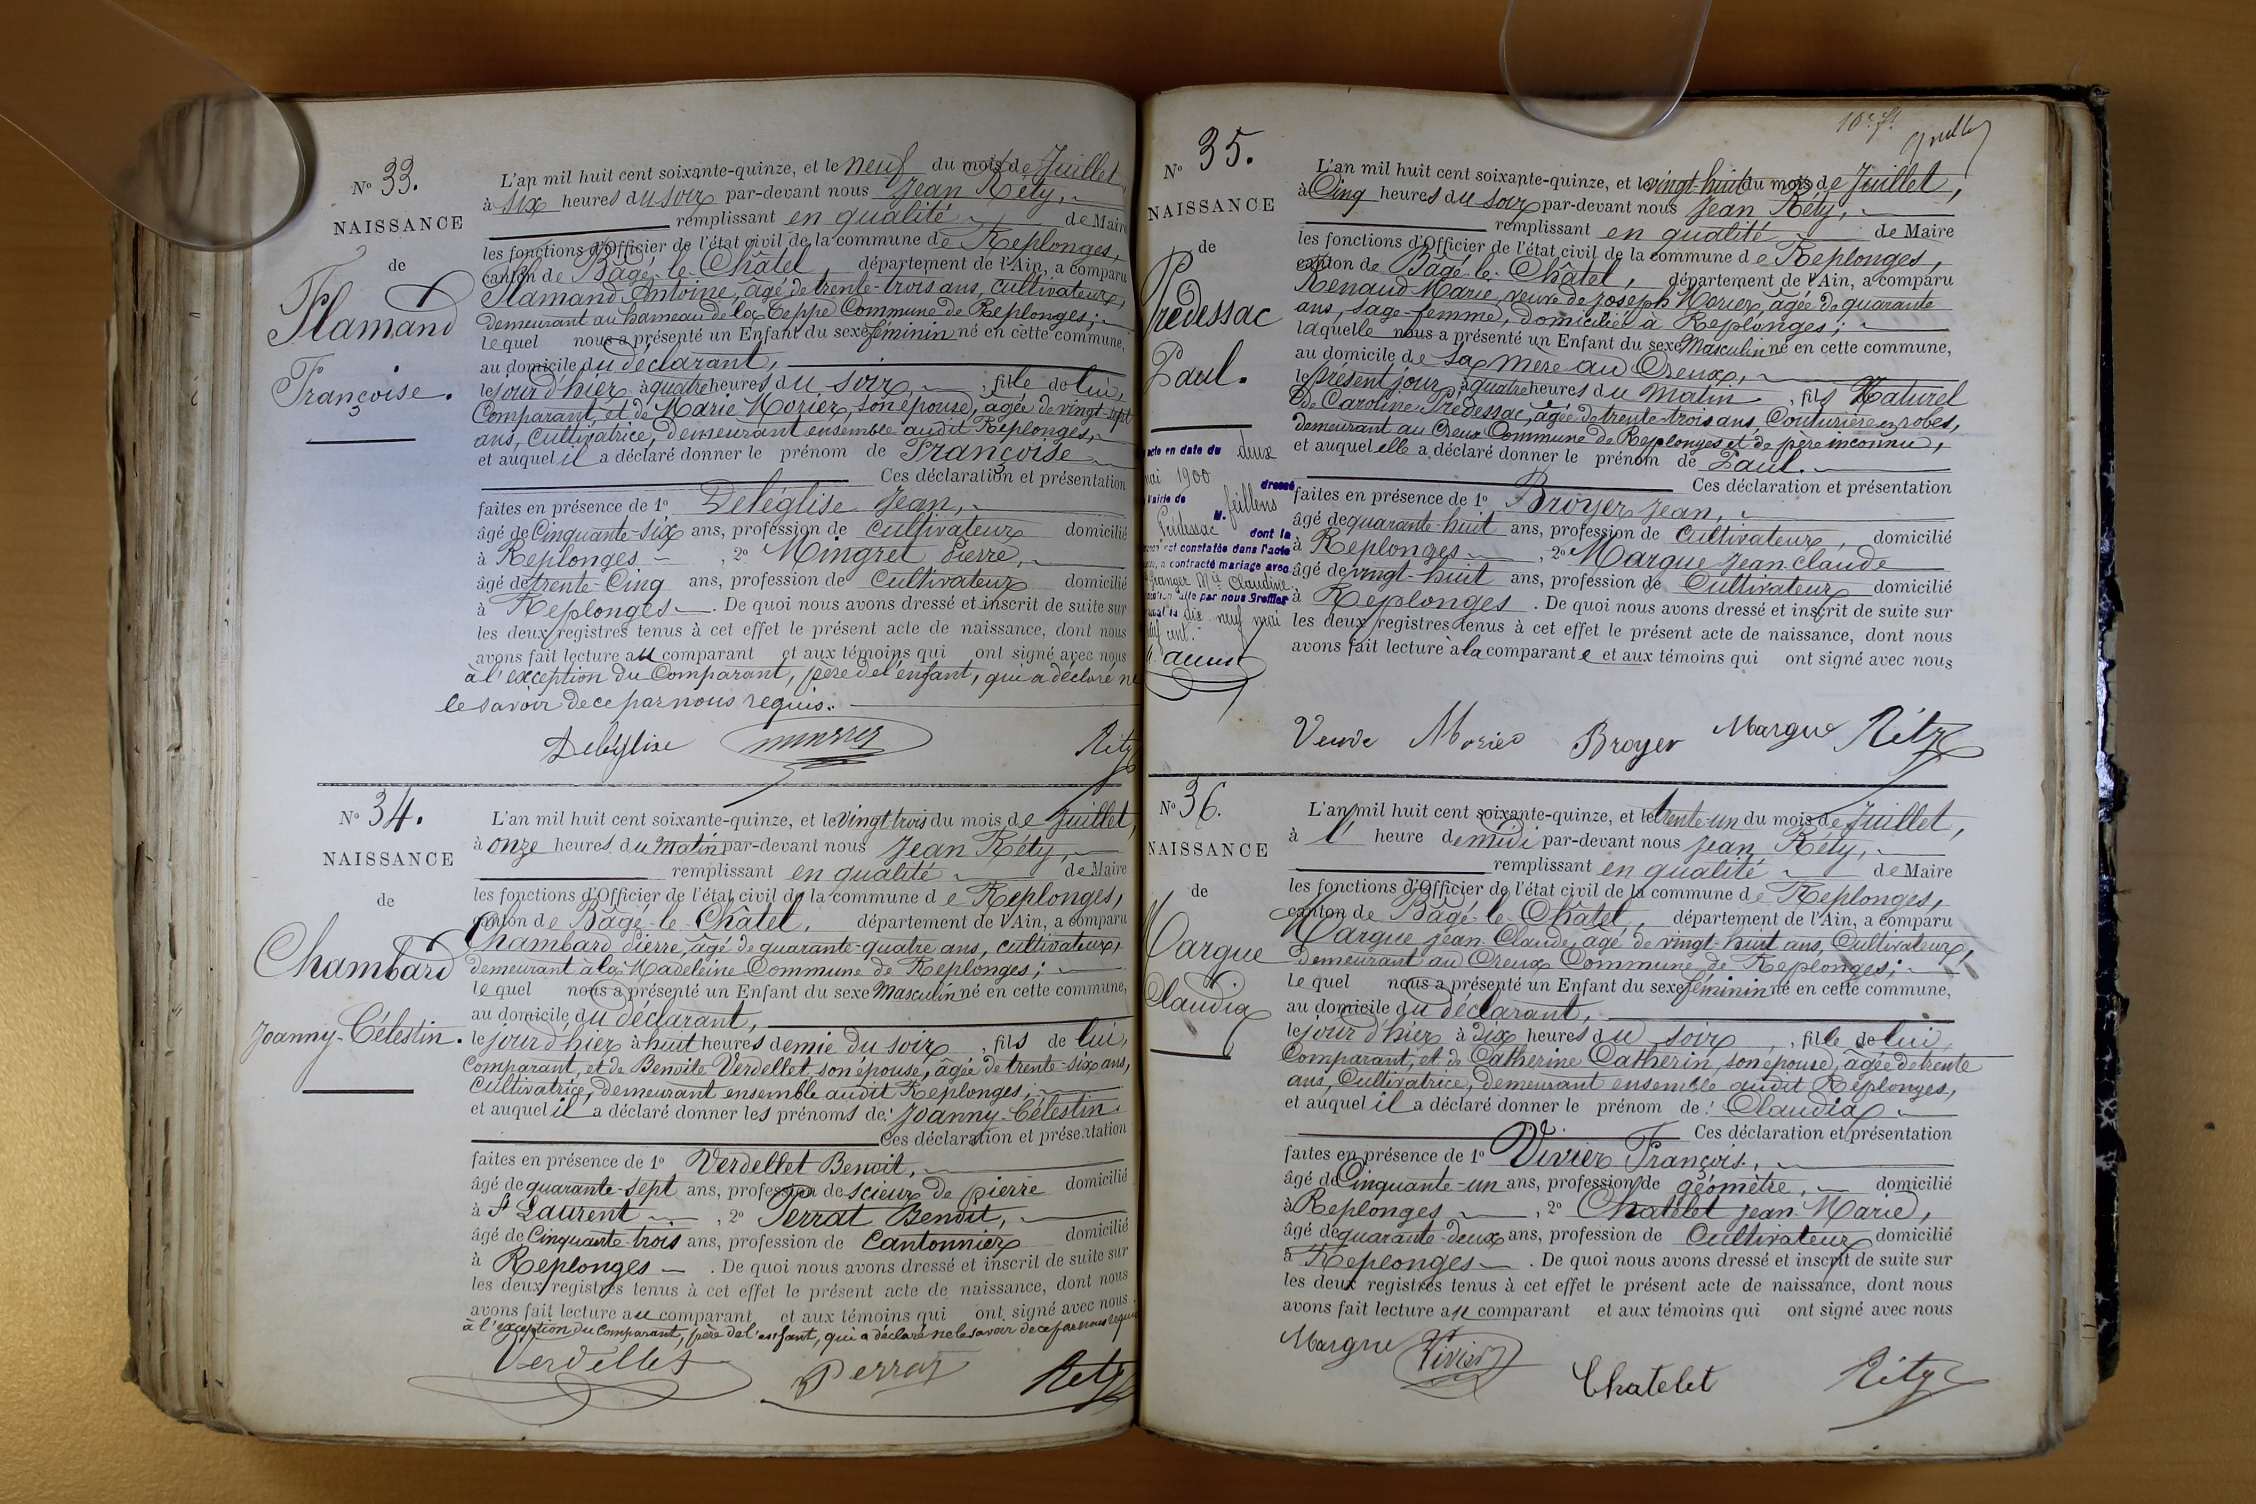 N° 33.
NAISSANCE
de
Flamand
Françoise.
L'an mil huit cent soixante-quinze, et le neuf du mois de Juillet,
à six heures du soir par-devant nous Jean Réty,
remplissant en qualité de Maire
les fonctions d'Officier de l'état civil de la commune de Replonges,
canton de Bâgé-le-Châtel, département de l'Ain, a comparu
Flamand Antoine, âgé de trente-trois ans, cultivateur,
demeurant au hameau de la Teppe Commune de Replonges;
lequel nous a présenté un Enfant du sexe féminin né en cette commune,
au domicile du déclarant,
le jour d'hier à quatre heures du soir, fille de lui,
Comparant, et de Marie Morier, son épouse, âgée de vingt-sept
ans, cultivatrice, demeurant ensemble audit Replonges,
et auquel il a déclaré donner le prénom de Françoise
Ces déclaration et présentation
faites en présence de 1° Deléglise Jean,
âgé de Cinquante-six ans, profession de cultivateur domicilié
à Replonges, 2° Mingret Pierre,
âgé de trente-Cinq ans, profession de Cultivateur domicilié
à Replonges. De quoi nous avons dressé et inscrit de suite sur
les deux registres tenus à cet effet le présent acte de naissance, dont nous
avons fait lecture au comparant et aux témoins qui ont signé avec nous
à l'exception du Comparant, père de l'enfant, qui a déclaré ne
le savoir de ce par nous requis.
Deléglise Réty
N° 34.
NAISSANCE
de
Chambard
Joanny-Célestin.
L'an mil huit cent soixante-quinze, et le vingt trois du mois de Juillet,
à onze heures du matin par-devant nous Jean Réty,
remplissant en qualité de Maire
les fonctions d'Officier de l'état civil de la commune de Replonges,
canton de Bâgé-le-Châtel, département de l'Ain, a comparu
Chambard Pierre, âgé de quarante-quatre ans, cultivateur,
demeurant à la Madeleine Commune de Replonges;
lequel nous a présenté un Enfant du sexe Masculin né en cette commune,
au domicile du déclarant,
le jour d'hier à huit heures demie du soir, fils de lui,
Comparant, et de Benoîte Verdellet, son épouse, âgée de trente-six ans,
Cultivatrice, demeurant ensemble audit Replonges;
et auquel il a déclaré donner les prénoms de: Joanny-Célestin.
Ces déclaration et présentation
faites en présence de 1° Verdellet Benoit,
âgé de quarante-sept ans, profession de scieur de pierre domicilié
à St Laurent, 2° Perrat Benoit,
âgé de Cinquante-trois ans, profession de Cantonnier domicilié
à Replonges. De quoi nous avons dressé et inscrit de suite sur
les deux registres tenus à cet effet le présent acte de naissance, dont nous
avons fait lecture au comparant et aux témoins qui ont signé avec nous
à l'exception du Comparant, père de l'enfant, qui a déclaré ne le savoir de ce par nous requis
Verdellet Perrat Réty
10e ft
N° 35.
NAISSANCE
de
Prédessac
Paul.
acte en date du deux
mai 1900 dressé
Mairie de feillens
M. Prédessac dont la
est constatée dans l'acte
a contracté mariage avec
Granger Mie Claudine.
faite par nous Greffier
dix neuf mai
L'an mil huit cent soixante-quinze, et le vingt-huit du mois de Juillet,
à Cinq heures du soir par-devant nous Jean Réty,
remplissant en qualité de Maire
les fonctions d'Officier de l'état civil de la commune de Replonges,
canton de Bâgé-le-Châtel, département de l'Ain, a comparu
Renaud Marie, veuve de Joseph Morier, âgée de quarante
ans, sage-femme, domiciliée à Replonges;
laquelle nous a présenté un Enfant du sexe Masculin né en cette commune,
au domicile de sa mère au Creux,
le présent jour à quatre heures du matin, fils Naturel
de Caroline Prédessac, âgée de trente-trois ans, Couturière en robes,
demeurant au Creux Commune de Replonges et de père inconnu,
et auquel elle a déclaré donner le prénom de Paul.
Ces déclaration et présentation
faites en présence de 1° Broyer Jean,
âgé de quarante-huit ans, profession de Cultivateur, domicilié
à Replonges, 2° Margue Jean-Claude
âgé de vingt-huit ans, profession de Cultivateur domicilié
à Replonges. De quoi nous avons dressé et inscrit de suite sur
les deux registres tenus à cet effet le présent acte de naissance, dont nous
avons fait lecture à la comparante et aux témoins qui ont signé avec nous
Veuve Morier Broyer Margue Réty
N° 36.
NAISSANCE
de
Margue
Claudia
L'an mil huit cent soixante-quinze, et le trente-un du mois de Juillet,
à l' heure de midi par-devant nous Jean Réty,
remplissant en qualité de Maire
les fonctions d'Officier de l'état civil de la commune de Replonges,
canton de Bâgé-le-Châtel, département de l'Ain, a comparu
Margue Jean-Claude, âgé de vingt-huit ans, Cultivateur,
demeurant au Creux Commune de Replonges;
lequel nous a présenté un Enfant du sexe féminin né en cette commune,
au domicile du déclarant,
le jour d'hier à dix heures du soir, fille de lui,
Comparant, et de Catherine Catherin, son épouse, âgée de trente
ans, Cultivatrice, demeurant ensemble audit Replonges,
et auquel il a déclaré donner le prénom de: Claudia
Ces déclaration et présentation
faites en présence de 1° Vivier François,
âgé de Cinquante-un ans, profession de géomètre, domicilié
à Replonges, 2° Chatelet Jean-Marie,
âgé de quarante-deux ans, profession de Cultivateur domicilié
à Replonges. De quoi nous avons dressé et inscrit de suite sur
les deux registres tenus à cet effet le présent acte de naissance, dont nous
avons fait lecture au comparant et aux témoins qui ont signé avec nous
Margue Vivier Chatelet Réty